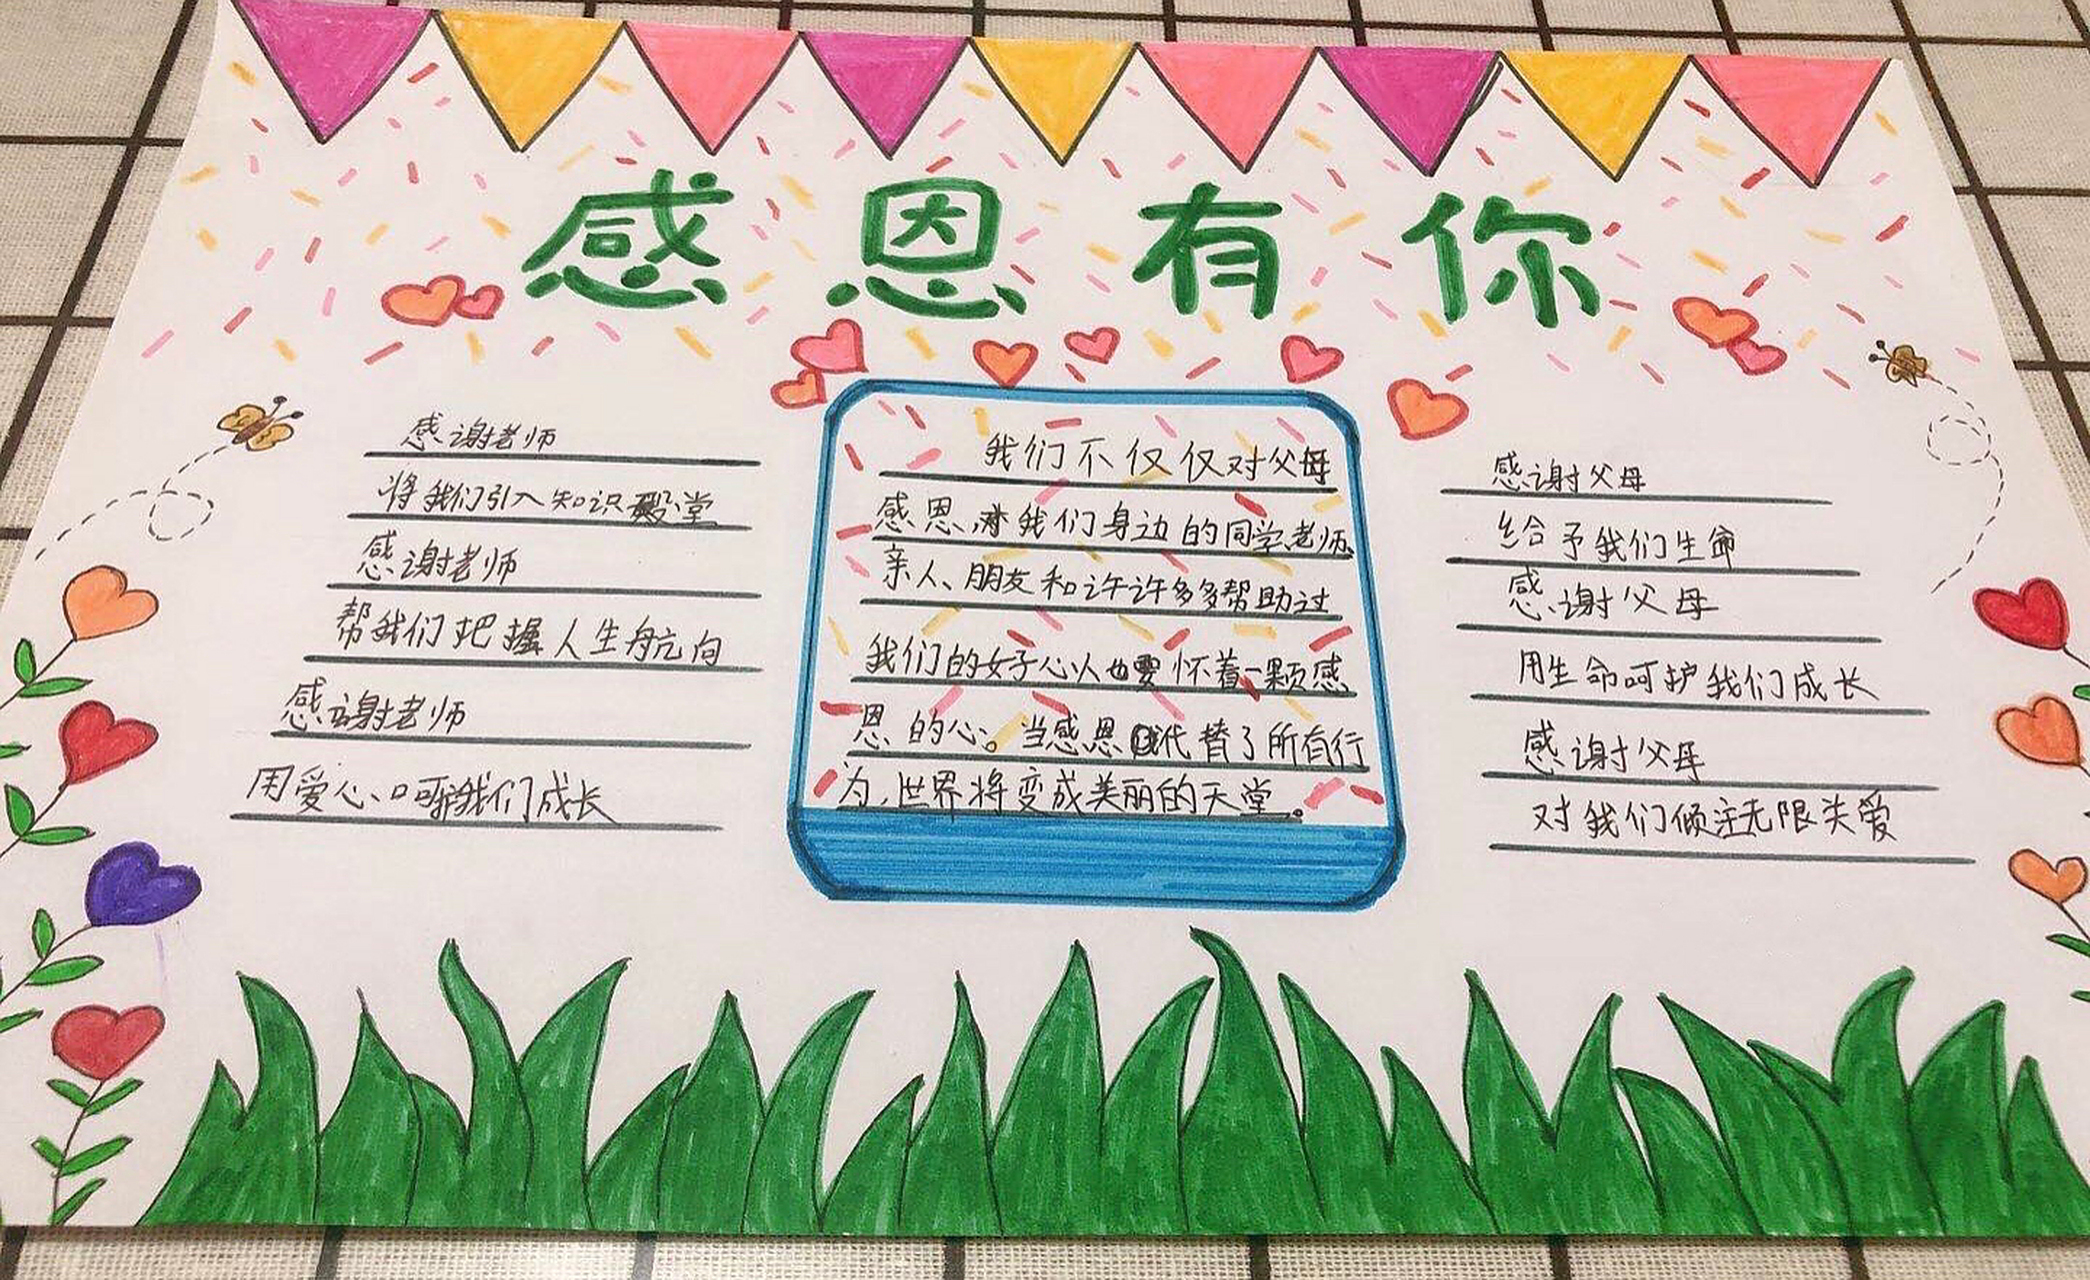 感恩有你
感谢老师
将我们引入知识殿堂
感谢老师
帮我们把握人生航向
感谢老师
用爱心呵护我们成长
我们不仅仅对父母
感恩,对我们身边的同学、老师、
亲人、朋友和许许多多帮助过
我们的好心人也要怀着一颗感
恩的心。当感恩代替了所有行
为,世界将变成美丽的天堂。
感谢父母
给予我们生命
感谢父母
用生命呵护我们成长
感谢父母
对我们倾注无限关爱